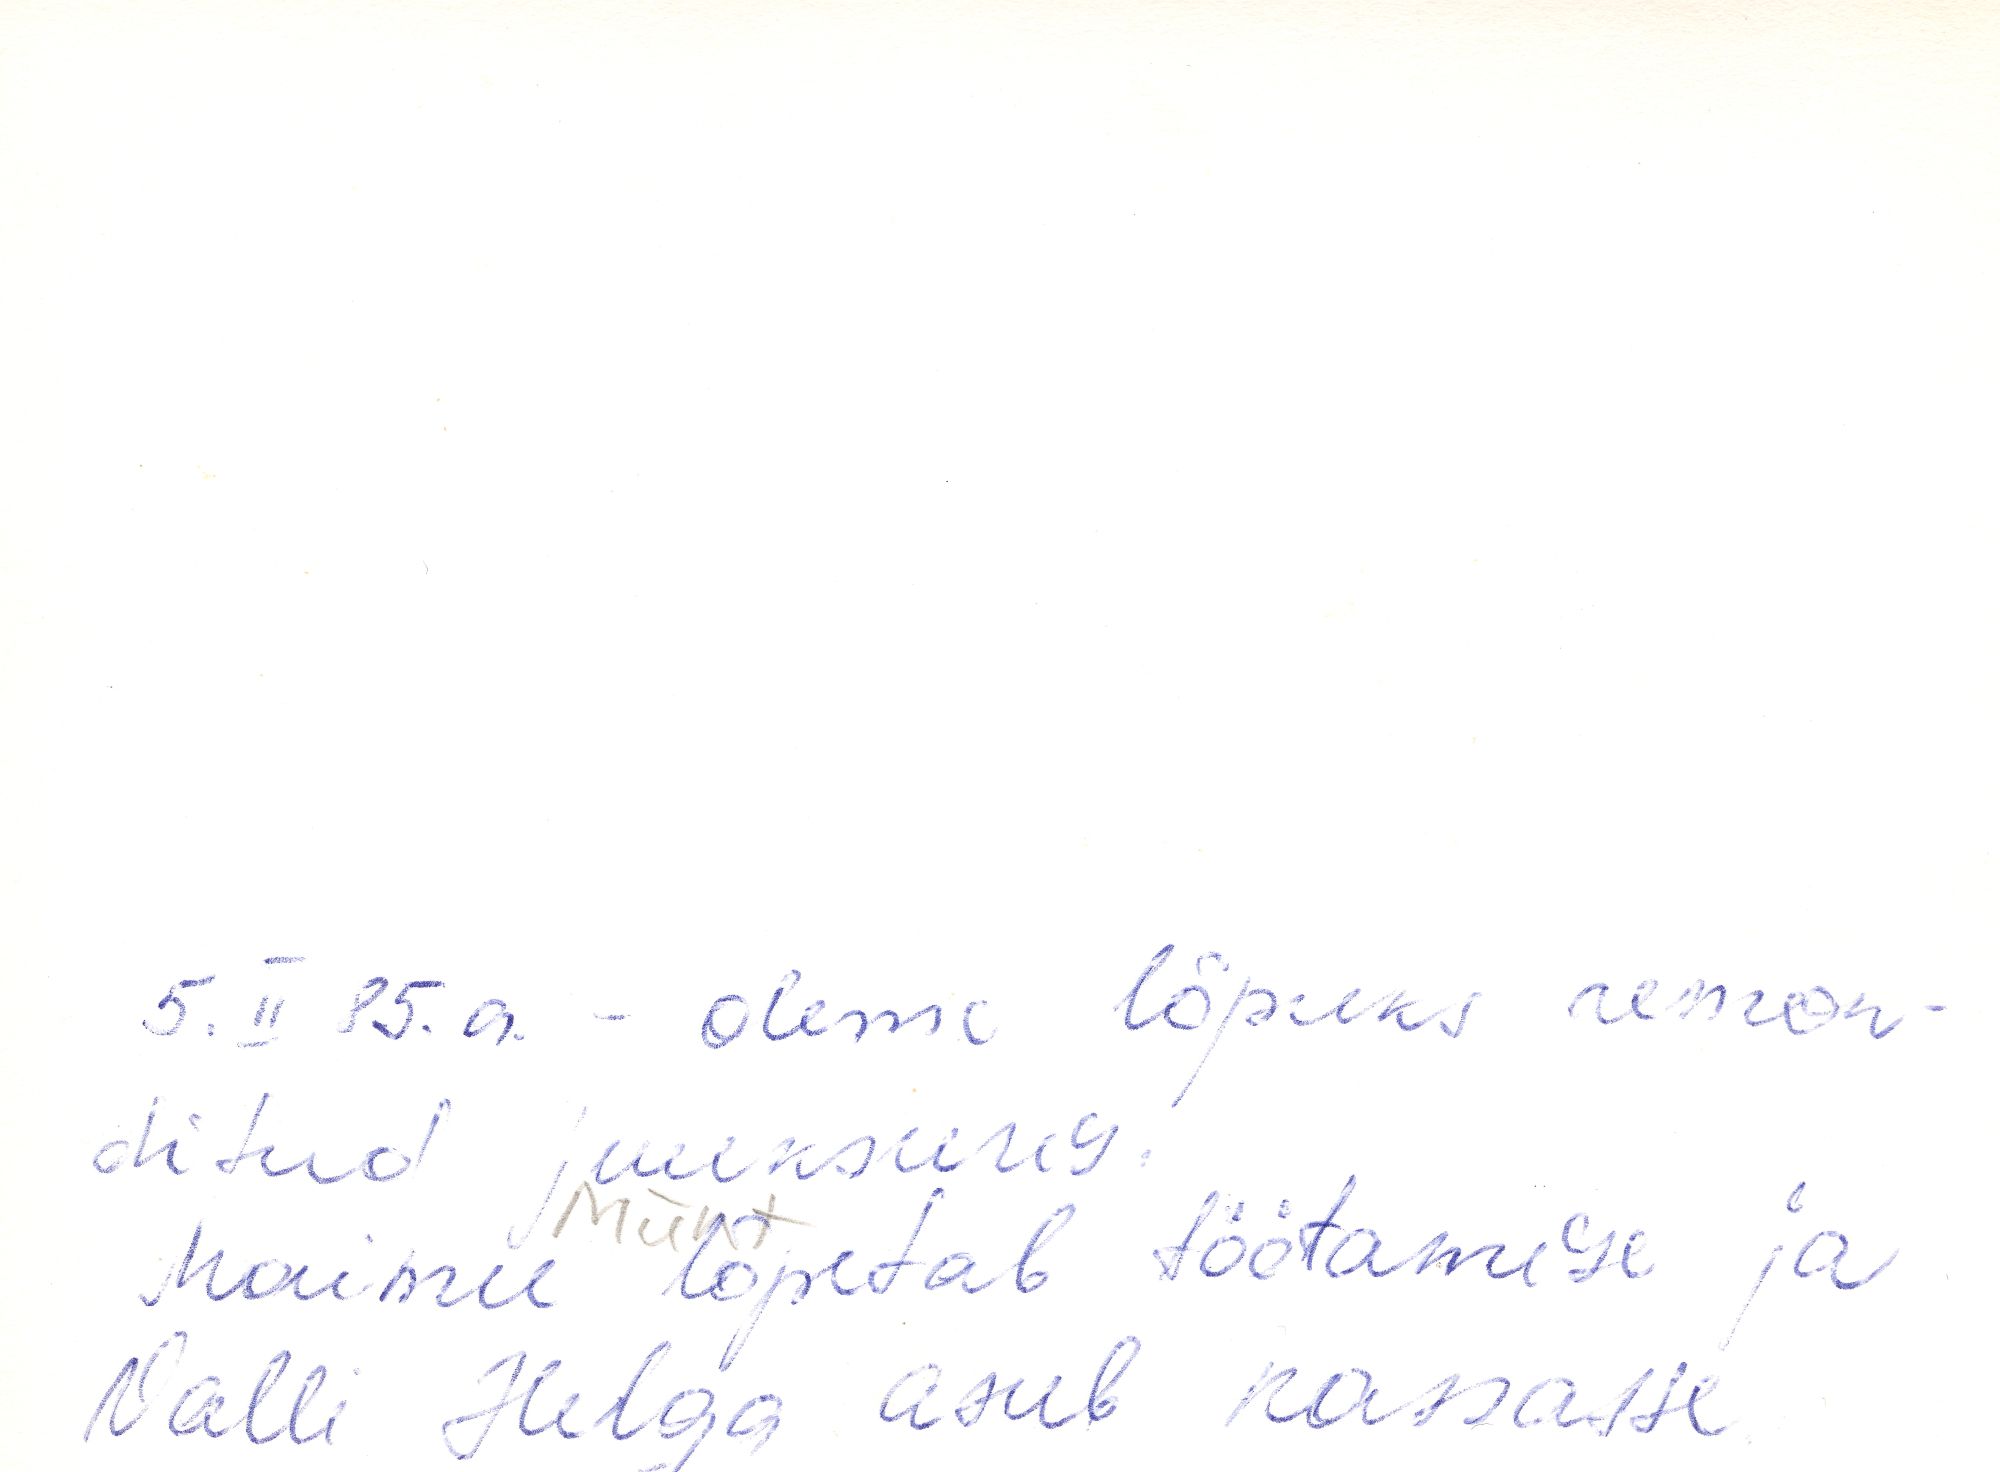 5. II 85. a. - oleme lõpuks remon-
ditud juuksuris.
Münt
Maimu lõpetab töötamise ja
Valli Helga asub kassasse.